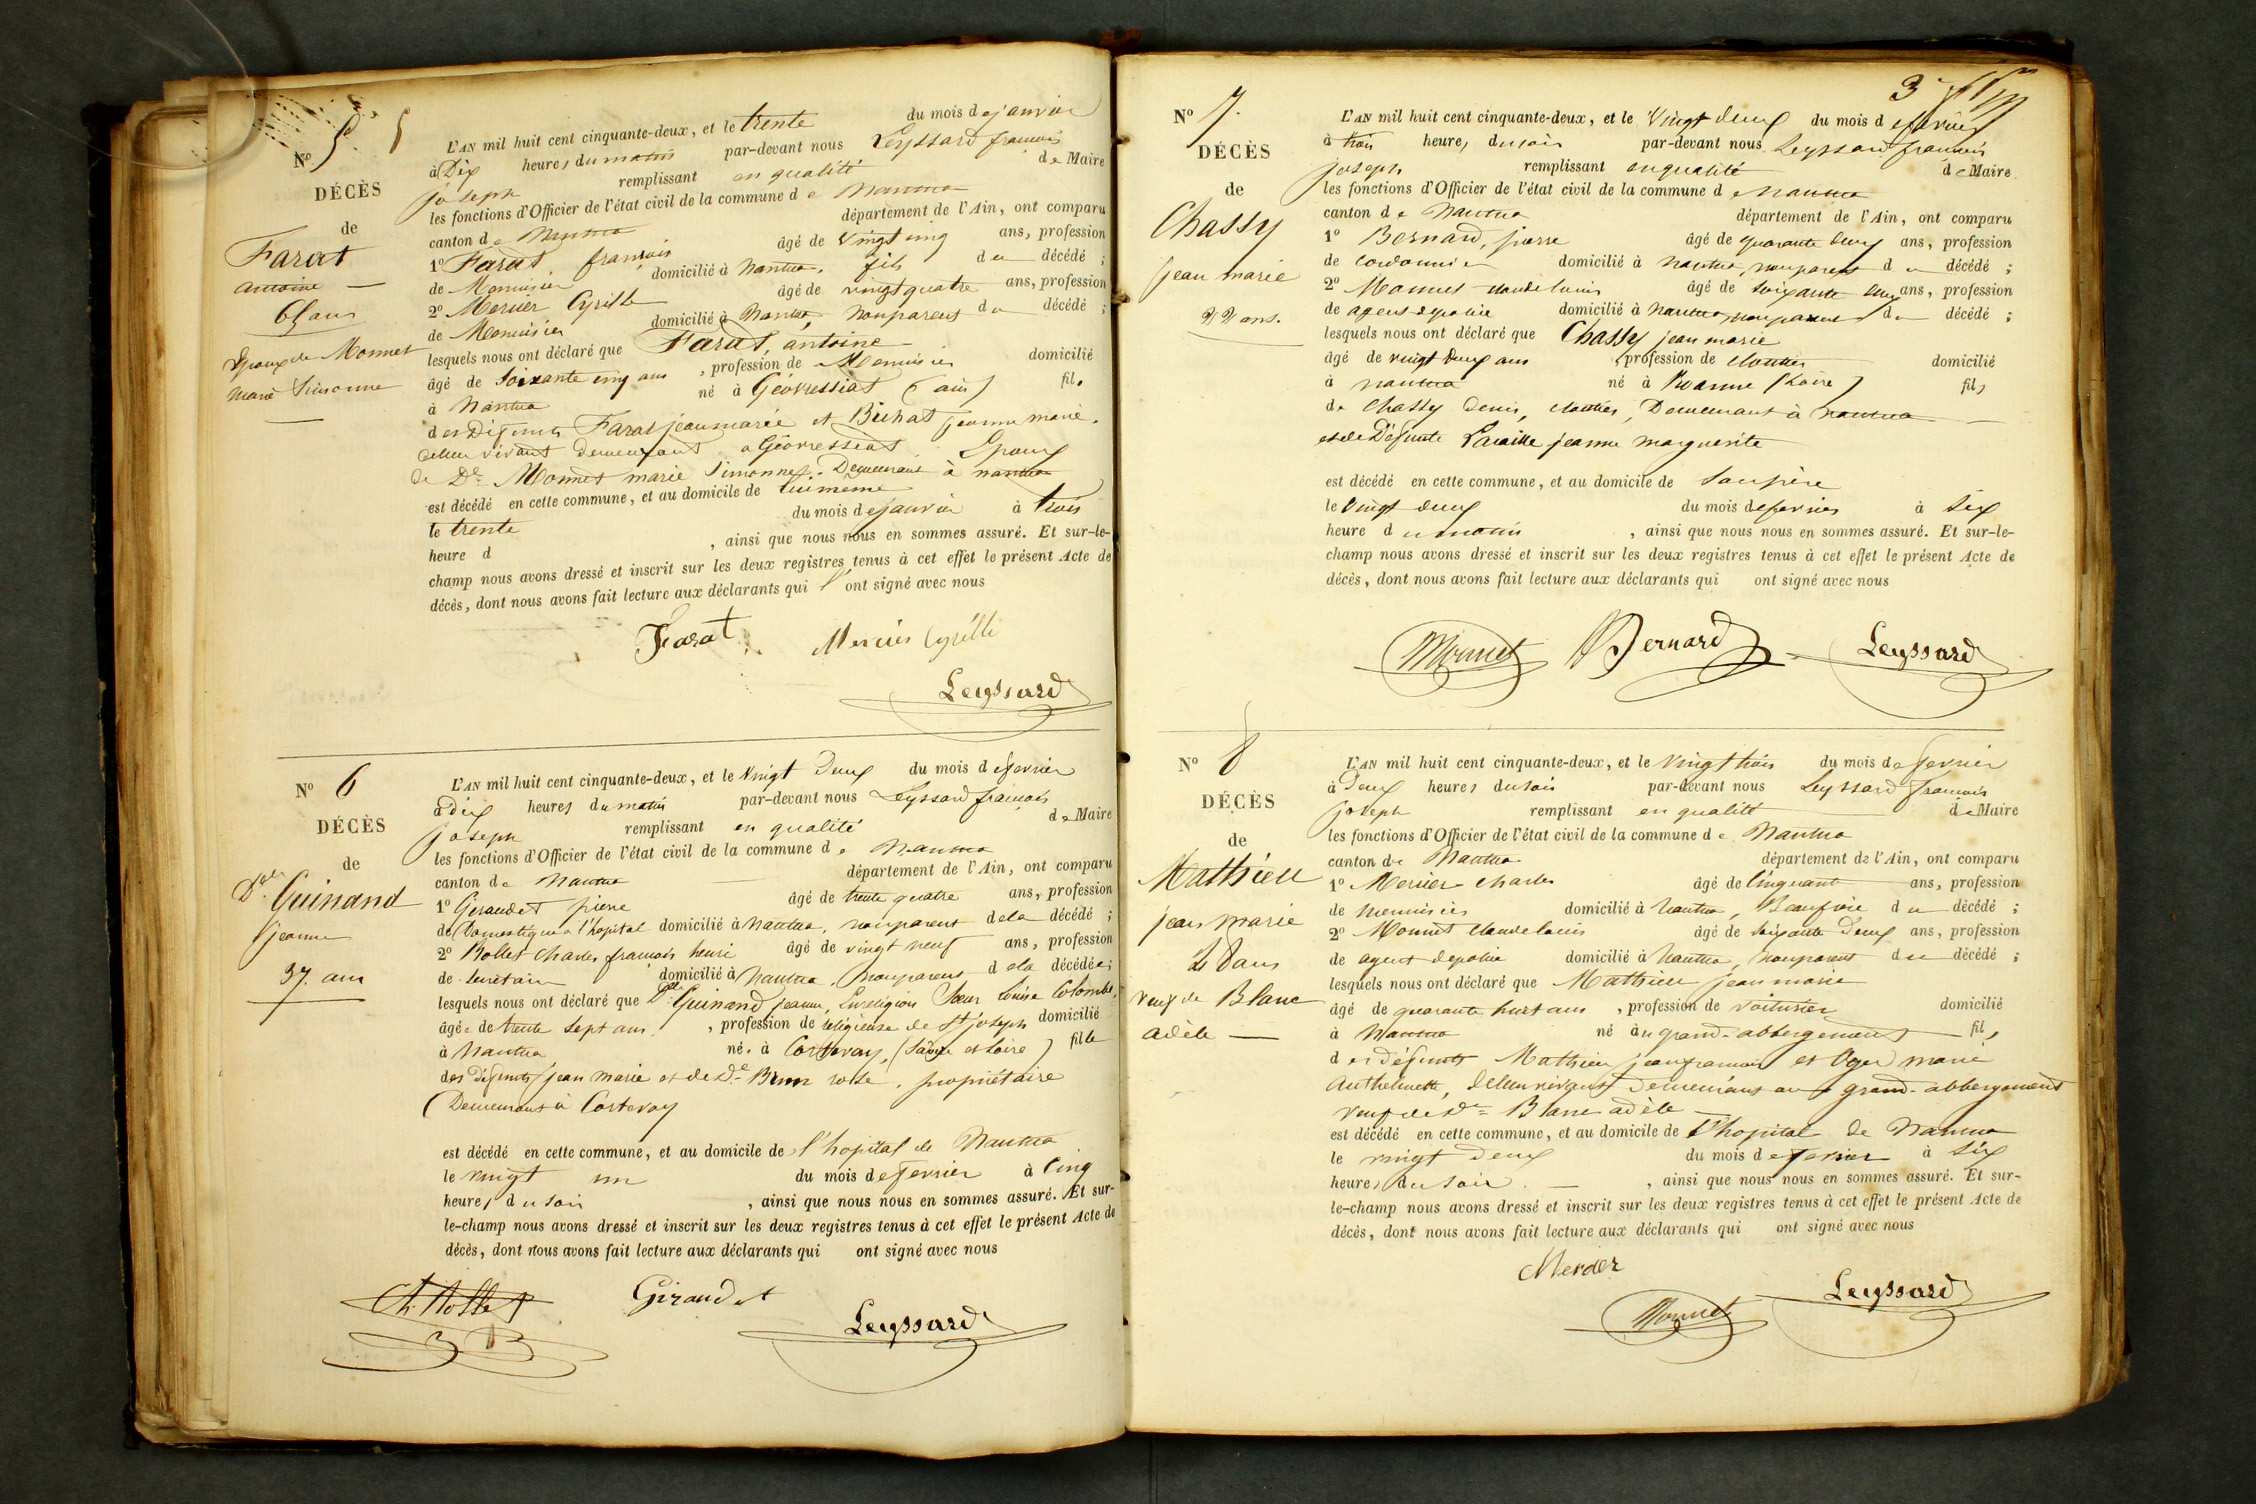 N° 5 5
DÉCÈS
de
Farat
antoine
65 ans
Epoux de Monnet
marie Simonne
L'AN mil huit cent cinquante-deux, et le trente du mois de janvier
à Dix heures du matin par-devant nous Leyssard françois
joseph remplissant en qualité de Maire
les fonctions d'Officier de l'état civil de la commune de Nantua
canton de Nantua département de l'Ain, ont comparu
1° Farat, françois âgé de vingt cinq ans, profession
de Menuisier domicilié à Nantua, fils du décédé ;
2° Mercier Cyrille âgé de vingt quatre ans, profession
de Menuisier domicilié à Nantua, nonparent du décédé ;
lesquels nous ont déclaré que Farat, antoine
âgé de Soixante cinq ans , profession de Menuisier domicilié
à Nantua né à Géovressiat (ain) fils
des Défunts Farat jean marie et Bichat jeanne marie,
de leur vivant demeurant à Géovressiat Epoux
de De Monnet marie Simonne, Demeurant à nantua
est décédé en cette commune, et au domicile de lui même
le trente du mois de janvier à trois
heure d , ainsi que nous nous en sommes assuré. Et sur-le-
champ nous avons dressé et inscrit sur les deux registres tenus à cet effet le présent Acte de
décès, dont nous avons fait lecture aux déclarants qui l'ont signé avec nous
Farat Mercier Cyrille
Leyssard
N° 6
DÉCÈS
de
Dlle Guinand
jeanne
37 ans
L'AN mil huit cent cinquante-deux, et le Vingt Deux du mois de fevrier
à dix heures du matin par-devant nous Leyssard françois
joseph remplissant en qualité de Maire
les fonctions d'Officier de l'état civil de la commune de Nantua
canton de Nantua département de l'Ain, ont comparu
1° Geraudet pierre âgé de trente quatre ans, profession
de Domestique à l'hopital domicilié à Nantua, nonparent de la décédé ;
2° Rollet Charles françois henri âgé de vingt neuf ans, profession
de secrétaire domicilié à Nantua, nonparent de la décédée;
lesquels nous ont déclaré que Dlle Guinand jeanne, En religion Sœur Louise Colombe,
âgée de trente Sept ans , profession de religieuse de St joseph domicilié
à Nantua née à Cortevay, (Saône et Loire) fille
des Défunts jean marie et de De Brun rose, propriétaire
Demeurant à Cortevay
est décédé en cette commune, et au domicile de l'hopital de Nantua
le vingt un du mois de fevrier à Cinq
heures du soir , ainsi que nous nous en sommes assuré. Et sur-
le-champ nous avons dressé et inscrit sur les deux registres tenus à cet effet le présent Acte de
décès, dont nous avons fait lecture aux déclarants qui ont signé avec nous
Ch. Rollet Giraudet
Leyssard
3
N° 7.
DÉCÈS
de
Chassy
jean marie
22 ans.
L'AN mil huit cent cinquante-deux, et le Vingt deux du mois de fevrier
à trois heures du soir par-devant nous Leyssard françois
joseph remplissant en qualité de Maire
les fonctions d'Officier de l'état civil de la commune de Nantua
canton de Nantua département de l'Ain, ont comparu
1° Bernard, pierre âgé de quarante deux ans, profession
de Cordonnier domicilié à Nantua, nonparent du décédé ;
2° Monnet claude louis âgé de soixante deux ans, profession
de agent de police domicilié à Nantua, nonparent du décédé ;
lesquels nous ont déclaré que Chassy jean marie
âgé de vingt deux ans , profession de cloutier domicilié
à Nantua né à Roanne (Loire) fils
de Chassy denis, cloutier, Demeurant à nantua
et de Défunte jeanne marguerite
est décédé en cette commune, et au domicile de Son père
le Vingt deux du mois de fevrier à six
heure du matin , ainsi que nous nous en sommes assuré. Et sur-le-
champ nous avons dressé et inscrit sur les deux registres tenus à cet effet le présent Acte de
décès, dont nous avons fait lecture aux déclarants qui ont signé avec nous
Monnet Bernard Leyssard
N° 8
DÉCÈS
de
Mathieu
jean marie
48 ans
veuf de Blanc
adèle
L'AN mil huit cent cinquante-deux, et le Vingt trois du mois de fevrier
à Deux heures du soir par-devant nous Leyssard françois
joseph remplissant en qualité de Maire
les fonctions d'Officier de l'état civil de la commune de Nantua
canton de Nantua département de l'Ain, ont comparu
1° Mercier charles âgé de Cinquante ans, profession
de menuisier domicilié à Nantua, Beaufrère du décédé ;
2° Monnet claude louis âgé de soixante deux ans, profession
de agent de police domicilié à Nantua, nonparent du décédé ;
lesquels nous ont déclaré que Mathieu jean marie
âgé de quarante huit ans , profession de voiturier domicilié
à Nantua né au grand-abbergement fils
des défunts Mathieu jean françois et Oger marie
Anthelmette, de leur vivant Demeurant au grand-abbergement
veuf de De Blanc adèle
est décédé en cette commune, et au domicile de l'hopital de Nantua
le vingt deux du mois de fevrier à six
heures du soir , ainsi que nous nous en sommes assuré. Et sur-
le-champ nous avons dressé et inscrit sur les deux registres tenus à cet effet le présent Acte de
décès, dont nous avons fait lecture aux déclarants qui ont signé avec nous
Mercier
Monnet Leyssard